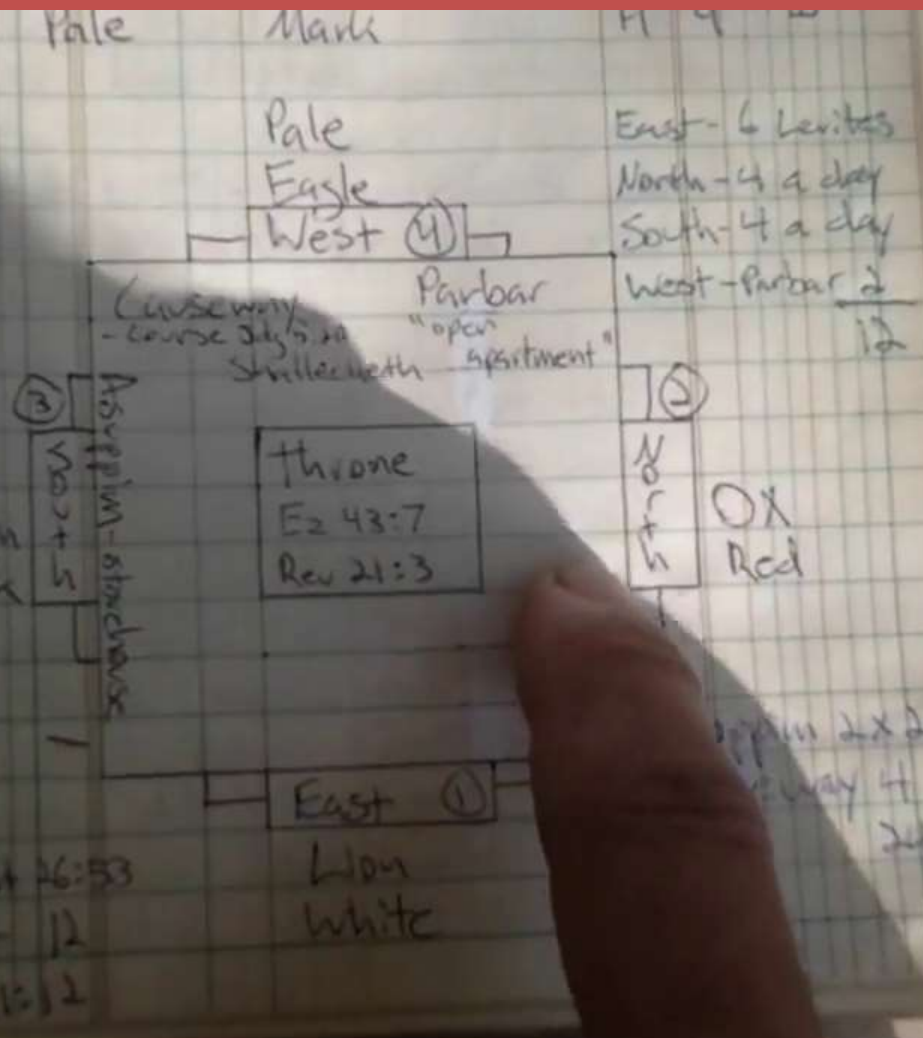 Pale Mark
Pale
Eagle
West 4
East - 6 Levites
North - 4 a day
South - 4 a day
West - Parbar 2
12
Causeway
- course
Parbar
"open
apartment"
3
South
Asuppim - storehouse
Throne
Ez 43:7
Rev 21:3
2
North
Ox
Red
East 1
Lion
White
2x2
4
26:53
12
12